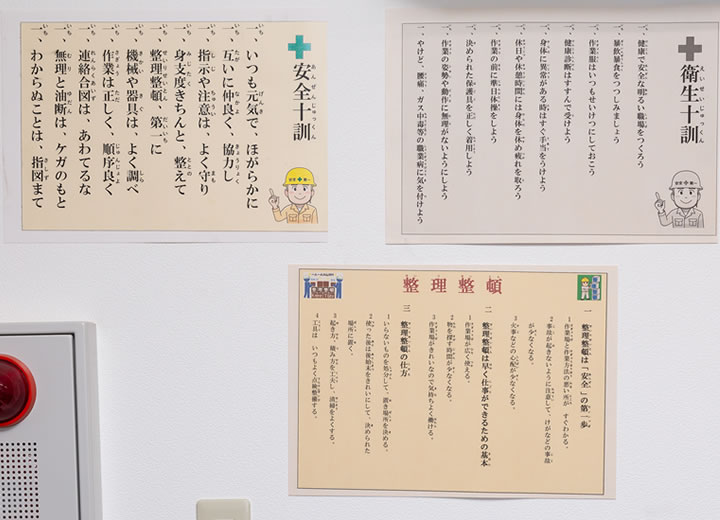 安全十訓
一、いつも元気で、ほがらかに
一、互いに仲良く、協力し
一、指示や注意は、よく守り
一、身支度きちんと、整えて
一、整理整頓、第一に
一、機械や器具は、よく調べ
一、作業は正しく、順序良く
一、連絡合図は、あわてるな
一、無理と油断は、ケガのもと
一、わからぬことは、指図まて
衛生十訓
一、健康で安全な明るい職場をつくろう
一、暴飲暴食をつつしみましょう
一、作業服はいつもせいけつにしておこう
一、健康診断はすすんで受けよう
一、身体に異常がある時はすぐ手当をうけよう
一、休日や休憩時間には身体を休め疲れを取ろう
一、作業の前に準日体操をしよう
一、決められた保護具を正しく着用しよう
一、作業の姿勢や動作に無理がないようにしよう
一、やけど、腰痛、ガス中毒等の職業病に気を付けよう
整理整頓
一 整理整頓は「安全」の第一歩
1 作業場と作業方法の悪い所が すぐわかる。
2 事故が起きないように注意して、けがなどの事故
が少なくなる。
3 火事などの心配が少なくなる。
二 整理整頓は早く仕事ができるための基本
1 作業場が広く使える。
2 物を探す時間が少なくなる。
3 作業場がきれいなので気持ちよく働ける。
三 整理整頓の仕方
1 いらないものを処分して、置き場所を決める。
2 使った後は後始末をきれいにして、決められた
場所に置く。
3 起き方、積み方を工夫し、清掃をよくする。
4 工具は いつもよく点検整備する。